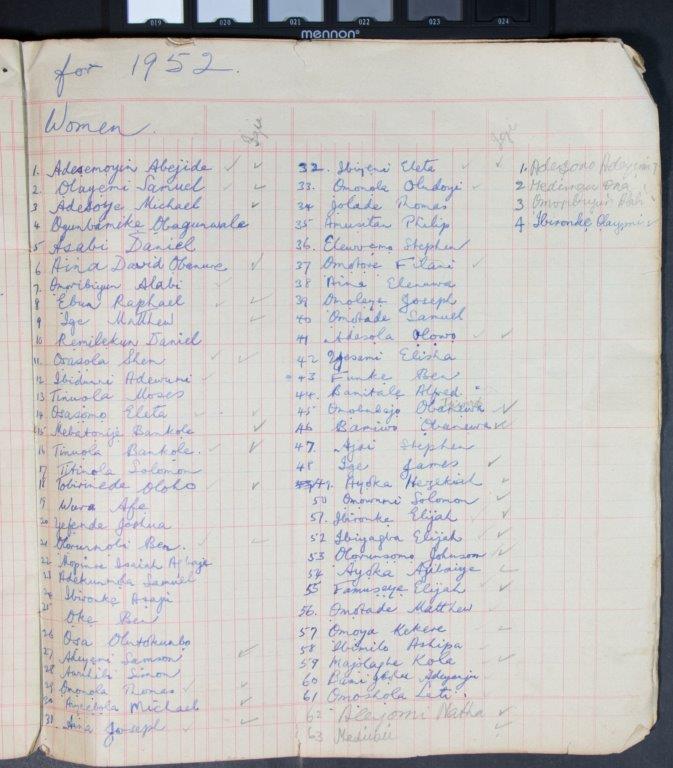 019 020 021 022 023 024
mennon
for 1952.
Women.
1. Adesemoyin Abejide
2. Olayemi Samuel
3 Adesoye Michael
4 Ogunbamike Obagunwale
5 Asabi Daniel
6 Aina David Obanure
7. Omoribiyun Alabi
8 Ebun Raphael
9 Ige Matthew
10 Remilekun Daniel
11 Osasola
12 Ibidunni Adewumi
13 Tinuola Moses
14 Osasomo Eleta
15 Bankole
16 Tinuola Bankole.
17 Titinola Solomon
18 Ololo
19 Wura Afe
20 Yefende Joshua
21 Olorunnobi Ben.
22 Isaiah
23 Adekunmba Samuel
24 Ibironke
25 Oke Ben
26 Osa Olutokunbo
27 Adeyemi Samson
28 Simon
29 Omonola Thomas
30 Michael
31. Aina Joseph
32. Ibiyemi Eleta
33. Omonola Oludoyi
34 Jolade Thomas
35 Philip
36. Stephen
37 Omotore Filani
38 Aina Elenuwa
39 Omoleye Joseph
40 Omotade Samuel
41 Adesola Olowo
42 Elisha
43 Funke Ben
44. Banitale Alfred
45 Obanewa
46 Baniwo Obanewa
47. Ajai Stephen
48 Ige James
49. Ayoka Hezekiah
50 Omowumi Solomon
51. Ibironke Elijah
52 Ibiyagba Elijah
53 Olorunsomo Johnson
54 Ayoka Ajibaiye
55 Famuseye Elijah
56. Omotade Matthew
57 Omoya Kekere
58 Ibimilo Ashipa
59 Majolagbe Kola
60 Adeyanju
61 Omoshola
62 Natha
63
1. Adeyemi
2
3
4 Ibironke Olayemi